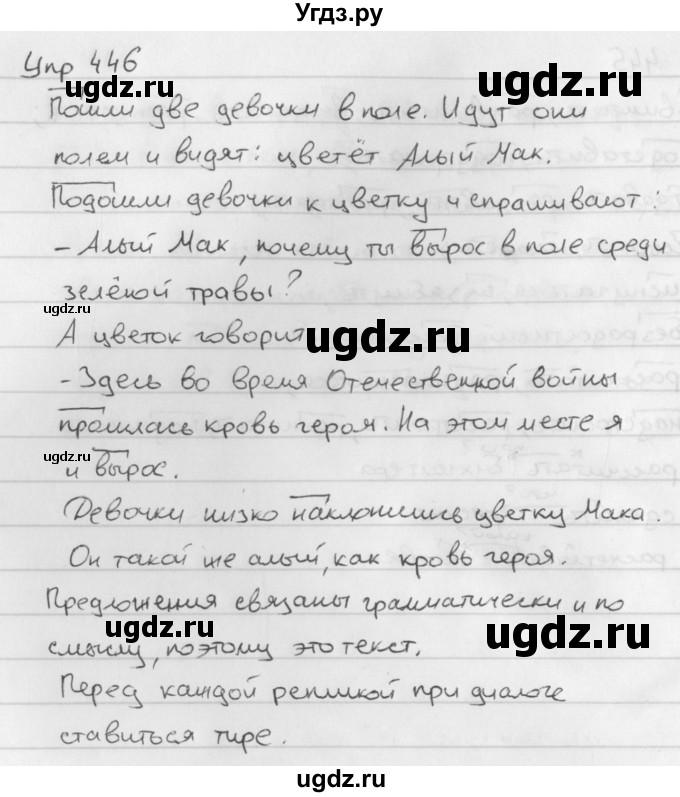 Угдз.ру
Упр 446
Пошли две девочки в поле. Идут они
полем и видят: цветёт Алый Мак.
Подошли девочки к цветку и спрашивают:
- Алый Мак, почему ты вырос в поле среди
зелёной травы?
А цветок говорит
- Здесь во время Отечественной войны
пролилась кровь героя. На этом месте я
и вырос.
Девочки низко наклонились цветку Мака.
Он такой же алый, как кровь героя.
Предложения связаны грамматически и по
смыслу, поэтому это текст.
Перед каждой репликой при диалоге
ставиться тире.
ugdz.ru
ugdz.ru
ugdz.ru
ugdz.ru
ugdz.ru
ugdz.ru
ugdz.ru
ugdz.ru